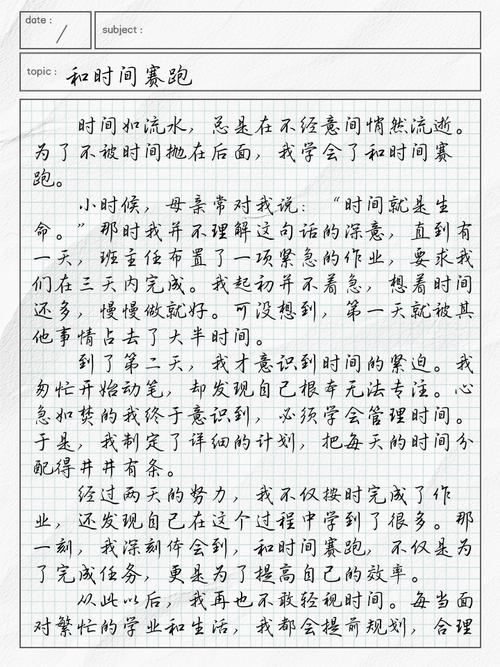 date :
subject :
topic : 和时间赛跑
时间如流水，总是在不经意间悄然流逝。
为了不被时间抛在后面，我学会了和时间赛
跑。
小时候，母亲常对我说：“时间就是生
命。”那时我并不理解这句话的深意，直到有
一天，班主任布置了一项紧急的作业，要求我
们在三天内完成。我起初并不着急，想着时间
还多，慢慢做就好。可没想到，第一天就被其
他事情占去了大半时间。
到了第二天，我才意识到时间的紧迫。我
匆忙开始动笔，却发现自己根本无法专注。心
急如焚的我终于意识到，必须学会管理时间。
于是，我制定了详细的计划，把每天的时间分
配得井井有条。
经过两天的努力，我不仅按时完成了作
业，还发现自己在这个过程中学到了很多。那
一刻，我深刻体会到，和时间赛跑，不仅是为
了完成任务，更是为了提高自己的效率。
从此以后，我再也不敢轻视时间。每当面
对繁忙的学业和生活，我都会提前规划，合理